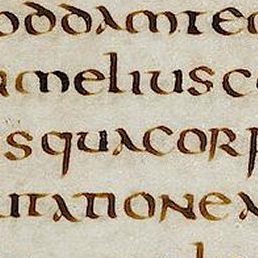 oddamteo
ameliusco
squacorp
utationea